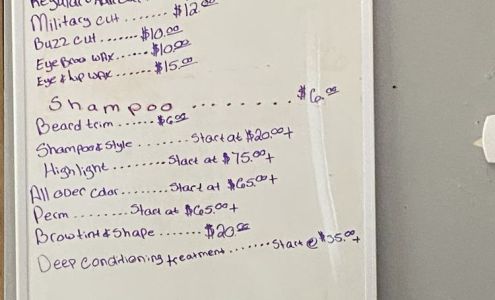 Regular
Military cut ....... $12.00
Buzz cut ....... $10.00
Eye Brow wax ...... $10.00
Eye & lip wax ...... $15.00
Shampoo ........ $6.00
Beard trim ...... $6.00
Shampoo & Style ........ Start at $20.00+
Highlight ....... Start at $75.00+
All over color ........ Start at $65.00+
Perm ........ Start at $65.00+
Brow tint & Shape ....... $20.00
Deep conditioning treatment ....... Start @ $35.00+